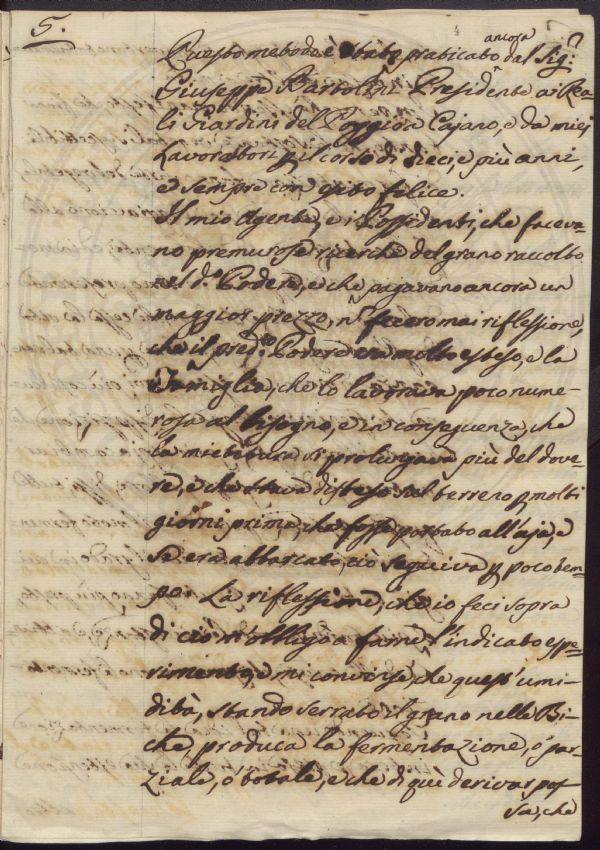 5.
ancora
Questo metodo è stato praticato dal Sig:
Giuseppe Bartolini Presidente ai Rea-
li Giardini del Poggio a Cajano, e da miei
Lavoratori p il corso di dieci, e più anni,
e sempre con esito felice.
Il mio Agente, e i Possidenti, che faceva-
no premurose ricerche del grano raccolto
al d.º Podere, e che pagavano ancora un
maggior prezzo, nõ fecero mai riflessione,
che il pred.º Podere era molto esteso, e la
Famiglia, che lo lavorava poco nume-
rosa al bisogno, e in conseguenza, che
la mietitura si prolungava più del dove-
re, e che stava disteso sul terreno p molti
giorni prima, che fosse portato all'aja, e
se era abbarcato, ciò seguiva p poco tem-
po. La riflessione, che io feci sopra
di ciò m'obbligò a farne l'indicato espe-
rimento, e mi convinse, che quest'umi-
dità, stando serrato il grano nelle Bi-
che, produca la fermentazione, ò par-
ziale, ò totale, e che di què derivar pos-
sa, che